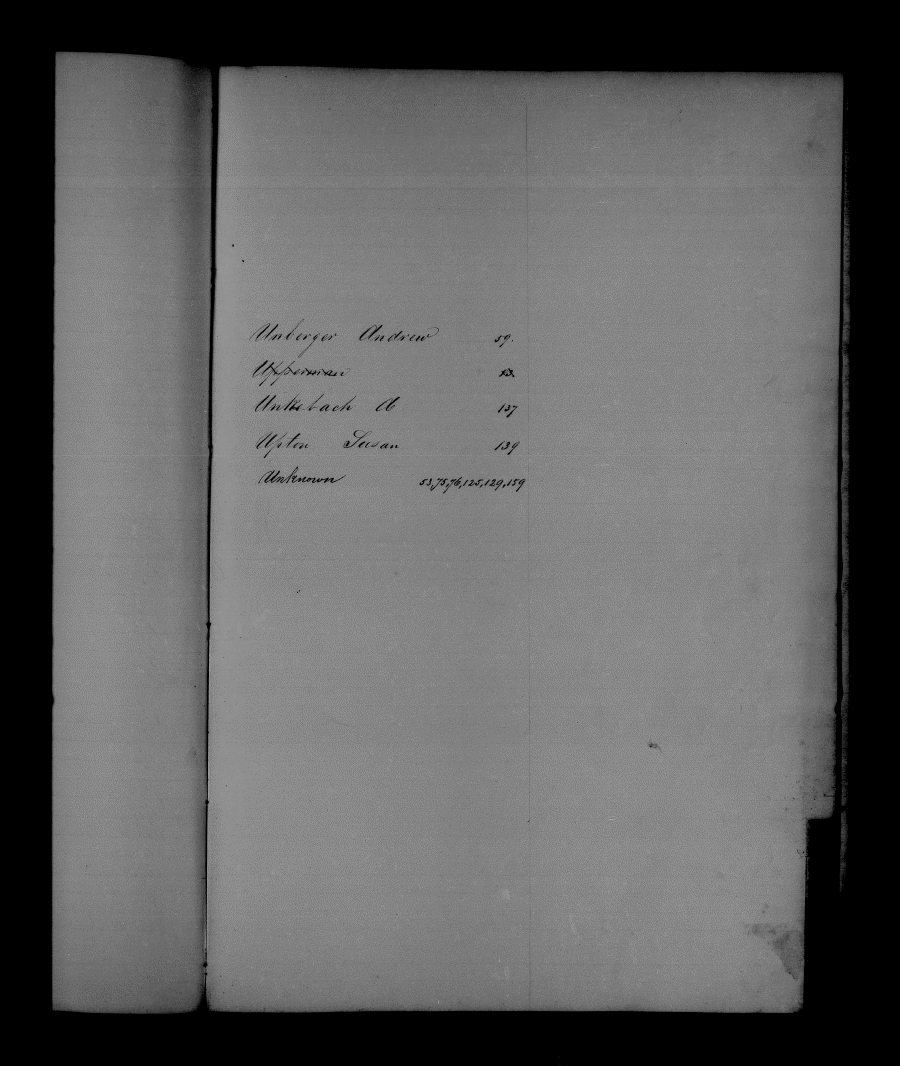 Unberger Andrew 59.
Upperman 53
Unkebach A 137
Upton Susan 139
Unknown 53,75,76,125,129,159